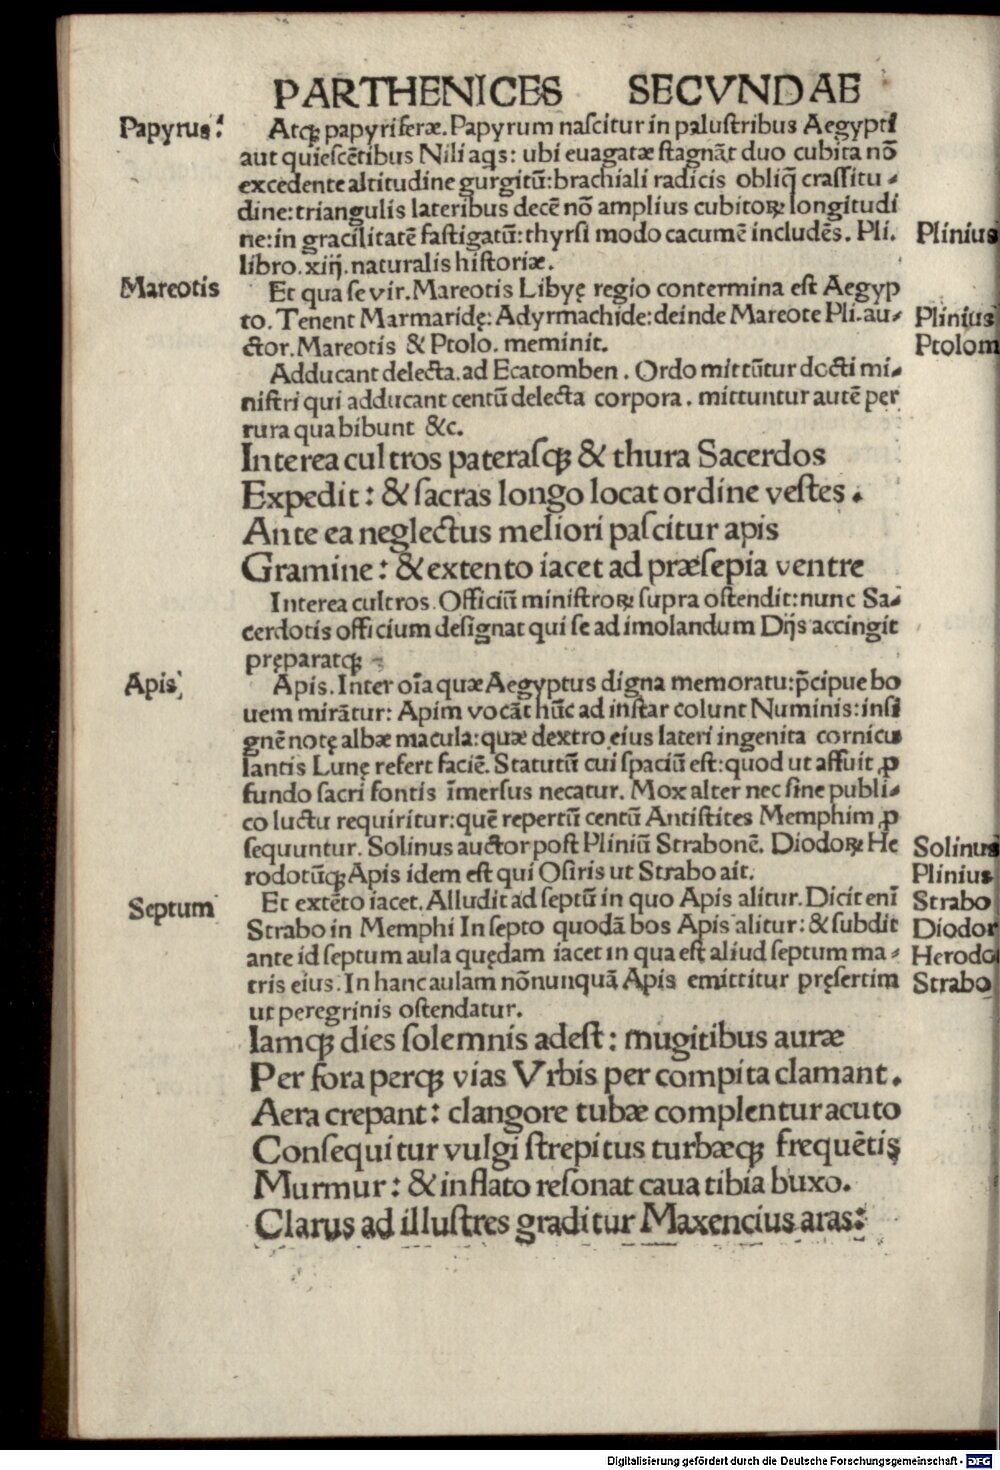 PARTHENICES SECVNDAE
Papyrus⁏
Atqꝫ papyriferæ. Papyrum naſcitur in paluſtribus Aegypti
aut quieſcẽtibus Nili aqs: ubi euagatæ ſtagnãt duo cubita nõ
excedente altitudine gurgitũ: brachiali radicis obliq̃ craſſitu⸗
dine: triangulis lateribus decẽ nõ amplius cubitoꝝ longitudi
ne: in gracilitatẽ faſtigatũ: thyrſi modo cacumẽ includẽs. Pli.
Plinius
libro. xiij. naturalis hiſtoriæ.
Mareotis
Et qua ſe vir. Mareotis Libyę regio contermina eſt Aegyp
to. Tenent Marmaridę: Adyrmachide: deinde Mareote Pli. au⸗
Plinius
ctor. Mareotis & Ptolo. meminit.
Ptolom
Adducant delecta. ad Ecatomben. Ordo mittũtur docti mi⸗
niſtri qui adducant centũ delecta corpora. mittuntur autẽ per
rura qua bibunt &c.
Interea cultros pateraſqꝫ & thura Sacerdos
Expedit: & ſacras longo locat ordine veſtes.
Ante ea neglectus meliori paſcitur apis
Gramine: & extento iacet ad præſepia ventre
Interea cultros. Officiũ miniſtroꝝ ſupra oſtendit: nunc Sa⸗
cerdotis officium deſignat qui ſe ad imolandum Dijs accingit
pręparatqꝫ
Apis
Apis. Inter oĩa quæ Aegyptus digna memoratu: p̃cipue bo
uem mirãtur: Apim vocãt hũc ad inſtar colunt Numinis: inſi
gnẽ notę albæ macula: quæ dextro eius lateri ingenita cornicu
lantis Lunę refert faciẽ. Statutũ cui ſpaciũ eſt: quod ut affuit ꝓ
fundo ſacri fontis ĩmerſus necatur. Mox alter nec ſine publi⸗
co luctu requiritur: quẽ repertũ centũ Antiſtites Memphim ꝓ
ſequuntur. Solinus auctor poſt Pliniũ Strabonẽ. Diodoꝝ He
Solinus
rodotũqꝫ Apis idem eſt qui Oſiris ut Strabo ait.
Plinius
Septum
Et extẽto iacet. Alludit ad ſeptũ in quo Apis alitur. Dicit enĩ
Strabo
Strabo in Memphi In ſepto quodã bos Apis alitur: & ſubdit
Diodor
ante id ſeptum aula quędam iacet in qua eſt aliud ſeptum ma⸗
Herodo
tris eius. In hanc aulam nõnunquã Apis emittitur pręſertim
Strabo
ut peregrinis oſtendatur.
Iamqꝫ dies ſolemnis adeſt: mugitibus auræ
Per fora perqꝫ vias Vrbis per compita clamant.
Aera crepant: clangore tubæ complentur acuto
Conſequitur vulgi ſtrepitus turbæqꝫ frequẽtis
Murmur: & inflato reſonat caua tibia buxo.
Clarus ad illuſtres graditur Maxencius aras:
Digitalisierung gefördert durch die Deutsche Forschungsgemeinschaft - DFG